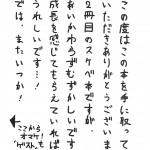 この度はこの本を手に取って
いただきありがとうございま
2冊目のスケベ本ですが、
おいかわらずむずいしいです
成長を感じてもらえていれば
うれしいです…!
では、またいつか!
ここから
オマケ!
"ゲスト"も